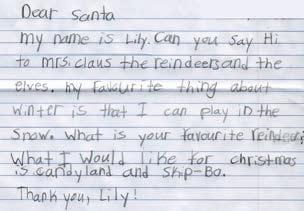 Dear Santa
My name is Lily. Can you say Hi
to mrs. claus the reindeers and the
elves. My favourite thing about
winter is that I can play in the
snow. What is your favourite reindeer?
What I would like for christmas
is candyland and Skip-Bo.
Thank you, Lily!